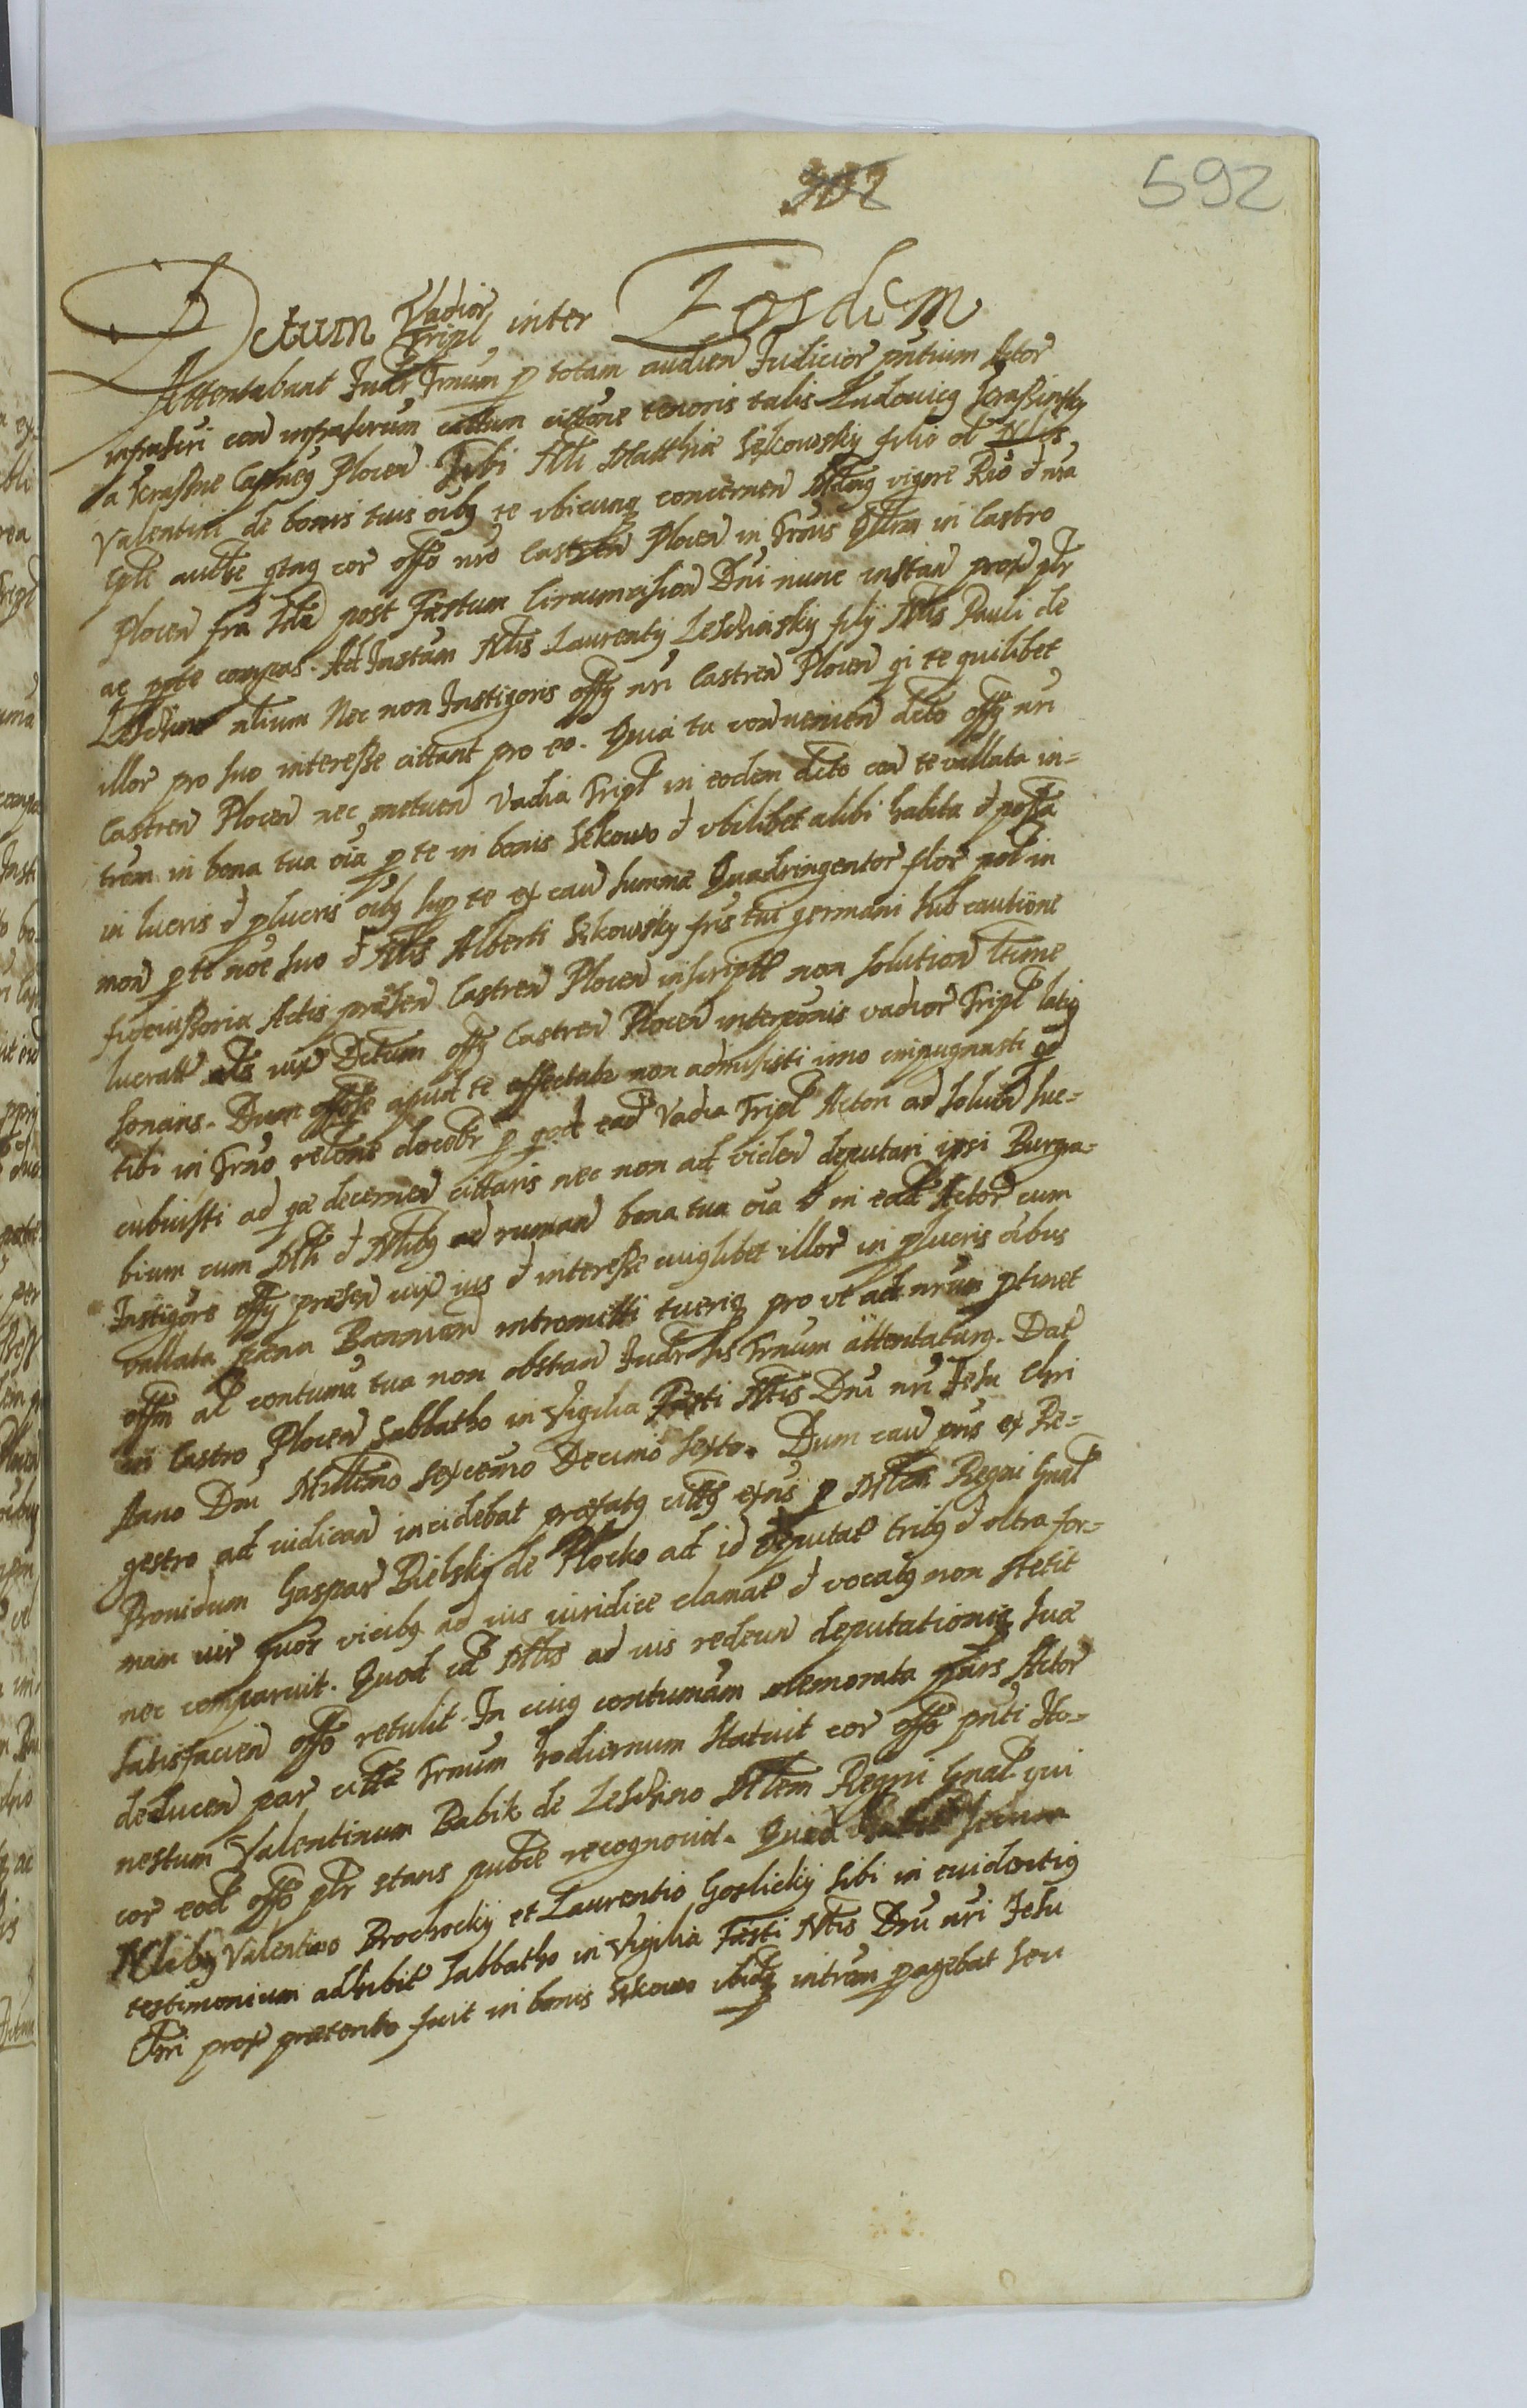 592
302
Dctum Vadior Tripl inter Eosdem
Attentabant Judr Trnum p totam audien Judicior pntium Actor
infrascri con infrascrum cittum cittone tenoris talis Ludovicq Krassinsky
a Krassne Captneq Plocen Tibi Nli Matthiæ Sękowsky filio ol Nlis
Valentini de bonis tuis oibq te ubicunq concernen Mdamq vigore Rio d nra
Cple aucthe qtnq cor offo nro Castren Plocen in Trnis Qtum in Castro
Plocen fra Scda post Festum Circumcision Dni nunc instan prox plr
ac ppte compeas. Ad Instam Nlis Laurentij Leschinsky filij Nlis Pauli de
Leschno alium Nec non Instigoris offij nri Castren Plocen qi te quilibet
illor pro suo interesse cittant pro eo. Quia tu convenien dcto offij nri
Castren Plocen nec metuen Vadia Tripl in eodem dcto con te vallata in-
trom in bona tua oia p te in bonis Sękowo d ubilibet alibi habita d possa
in lucris d plucris oibq sup te ex cau summæ Quadringentor flor pol in
mon p te noe suo d Nlis Alberti Sękowsky fris tui germani sub cautione
fideiussoria Actis præsen Castren Plocen inscriptæ non solution ltime
lucratæ als iux Dctum offij Castren Plocen interponis vadior Tripl latiq
sonans. Dum offose apud te affectatæ non admisisti imo impugnasti qd
tibi in Trno relone docebr p qod ead Vadia Tripl Actori ad solven suc-
cubuisti ad qæ decernen cittaris nec non ad viden deputari ipsi Burgra-
bium cum Mli d Nlibq ad ruman bona tua oia d in ead Actor cum
Instigore offij præsen iux ius d interesse cuiqlibet illor in plucris oibus
vallata pæna Bannion intromitti tueriq pro ut ad nrum ptinet
offm al contuma tua non obstan Judr sis Trnum attentaturq. Dat
in Castro Plocen Sabbatho in Vigilia Festi Ntis Dni nri Jesu Chri
Anno Dni Millimo sexcemo Decimo sexto. Dum cau pns ex Re-
gestro ad iudican incidebat præfatq cittq exns p Mlem Regni Gnal
Providum Gaspar Bielsky de Plocko ad id deputat tribq d ultra for-
mam iur quor vicibq ad ius iuridice clamat d vocatq non stetit
nec comparuit. Quod id Mlis ad ius redeun deputationiq suæ
satisfacien offo retulit. In cuiq contumam memorata pars Actor
deducen par cittæ Trnum hodiernum statuit cor offo pnti Ho-
nestum Valentinum Babik de Leschno Mlem Regni Gnal qui
cor eod offo plr stans publce recognovit. Quia habitis secum
Nlibq Valentino Brochocky et Laurentio Goslicky sibi in evidentiq
testimonium adhibit Sabbatho in Vigilia Festi Ntis Dni nri Jesu
Chri prox præterito fuit in bonis Sękowo ibidq introm pagebat seu